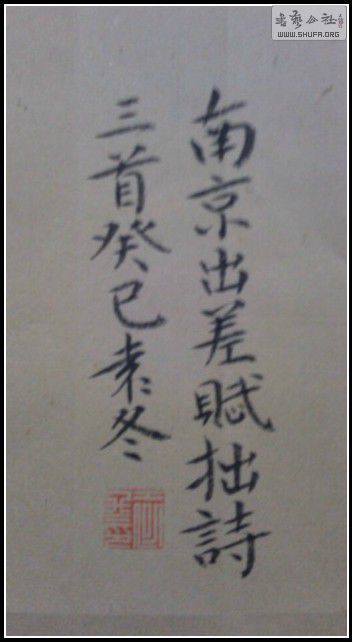 南京出差賦拙詩
三首癸巳袁冬
書藝公社
WWW.SHUFA.ORG